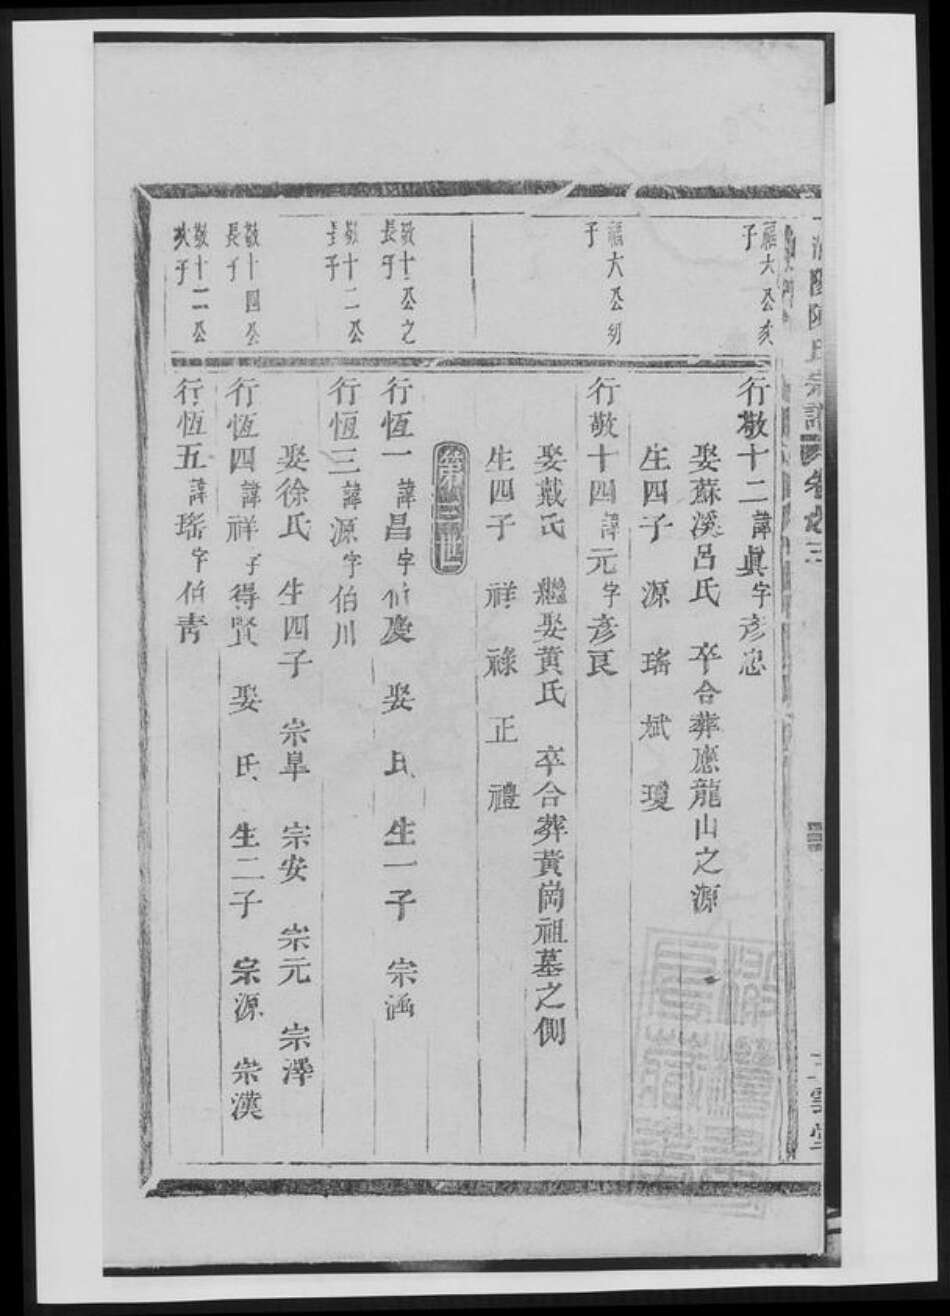 氏宗譜 卷之三
福大公次子
行敬十二諱眞字彥忠
娶蘇溪呂氏 卒合葬應龍山之源
生四子 源 瑤 斌 瓊
福大公幼子
行敬十四諱元字彥良
娶戴氏 繼娶黃氏 卒合葬黃崗祖墓之側
生四子 祥 祿 正 禮
敬十一公之長子
行恆一諱昌字伯慶 娶 氏 生一子 宗涵
敬十二公長子
行恆三諱源字伯川
娶徐氏 生四子 宗阜 宗安 宗元 宗澤
敬十四公長子
行恆四諱祥字得賢 娶 氏 生二子 宗源 宗漢
敬十二公次子
行恆五諱瑤字伯青